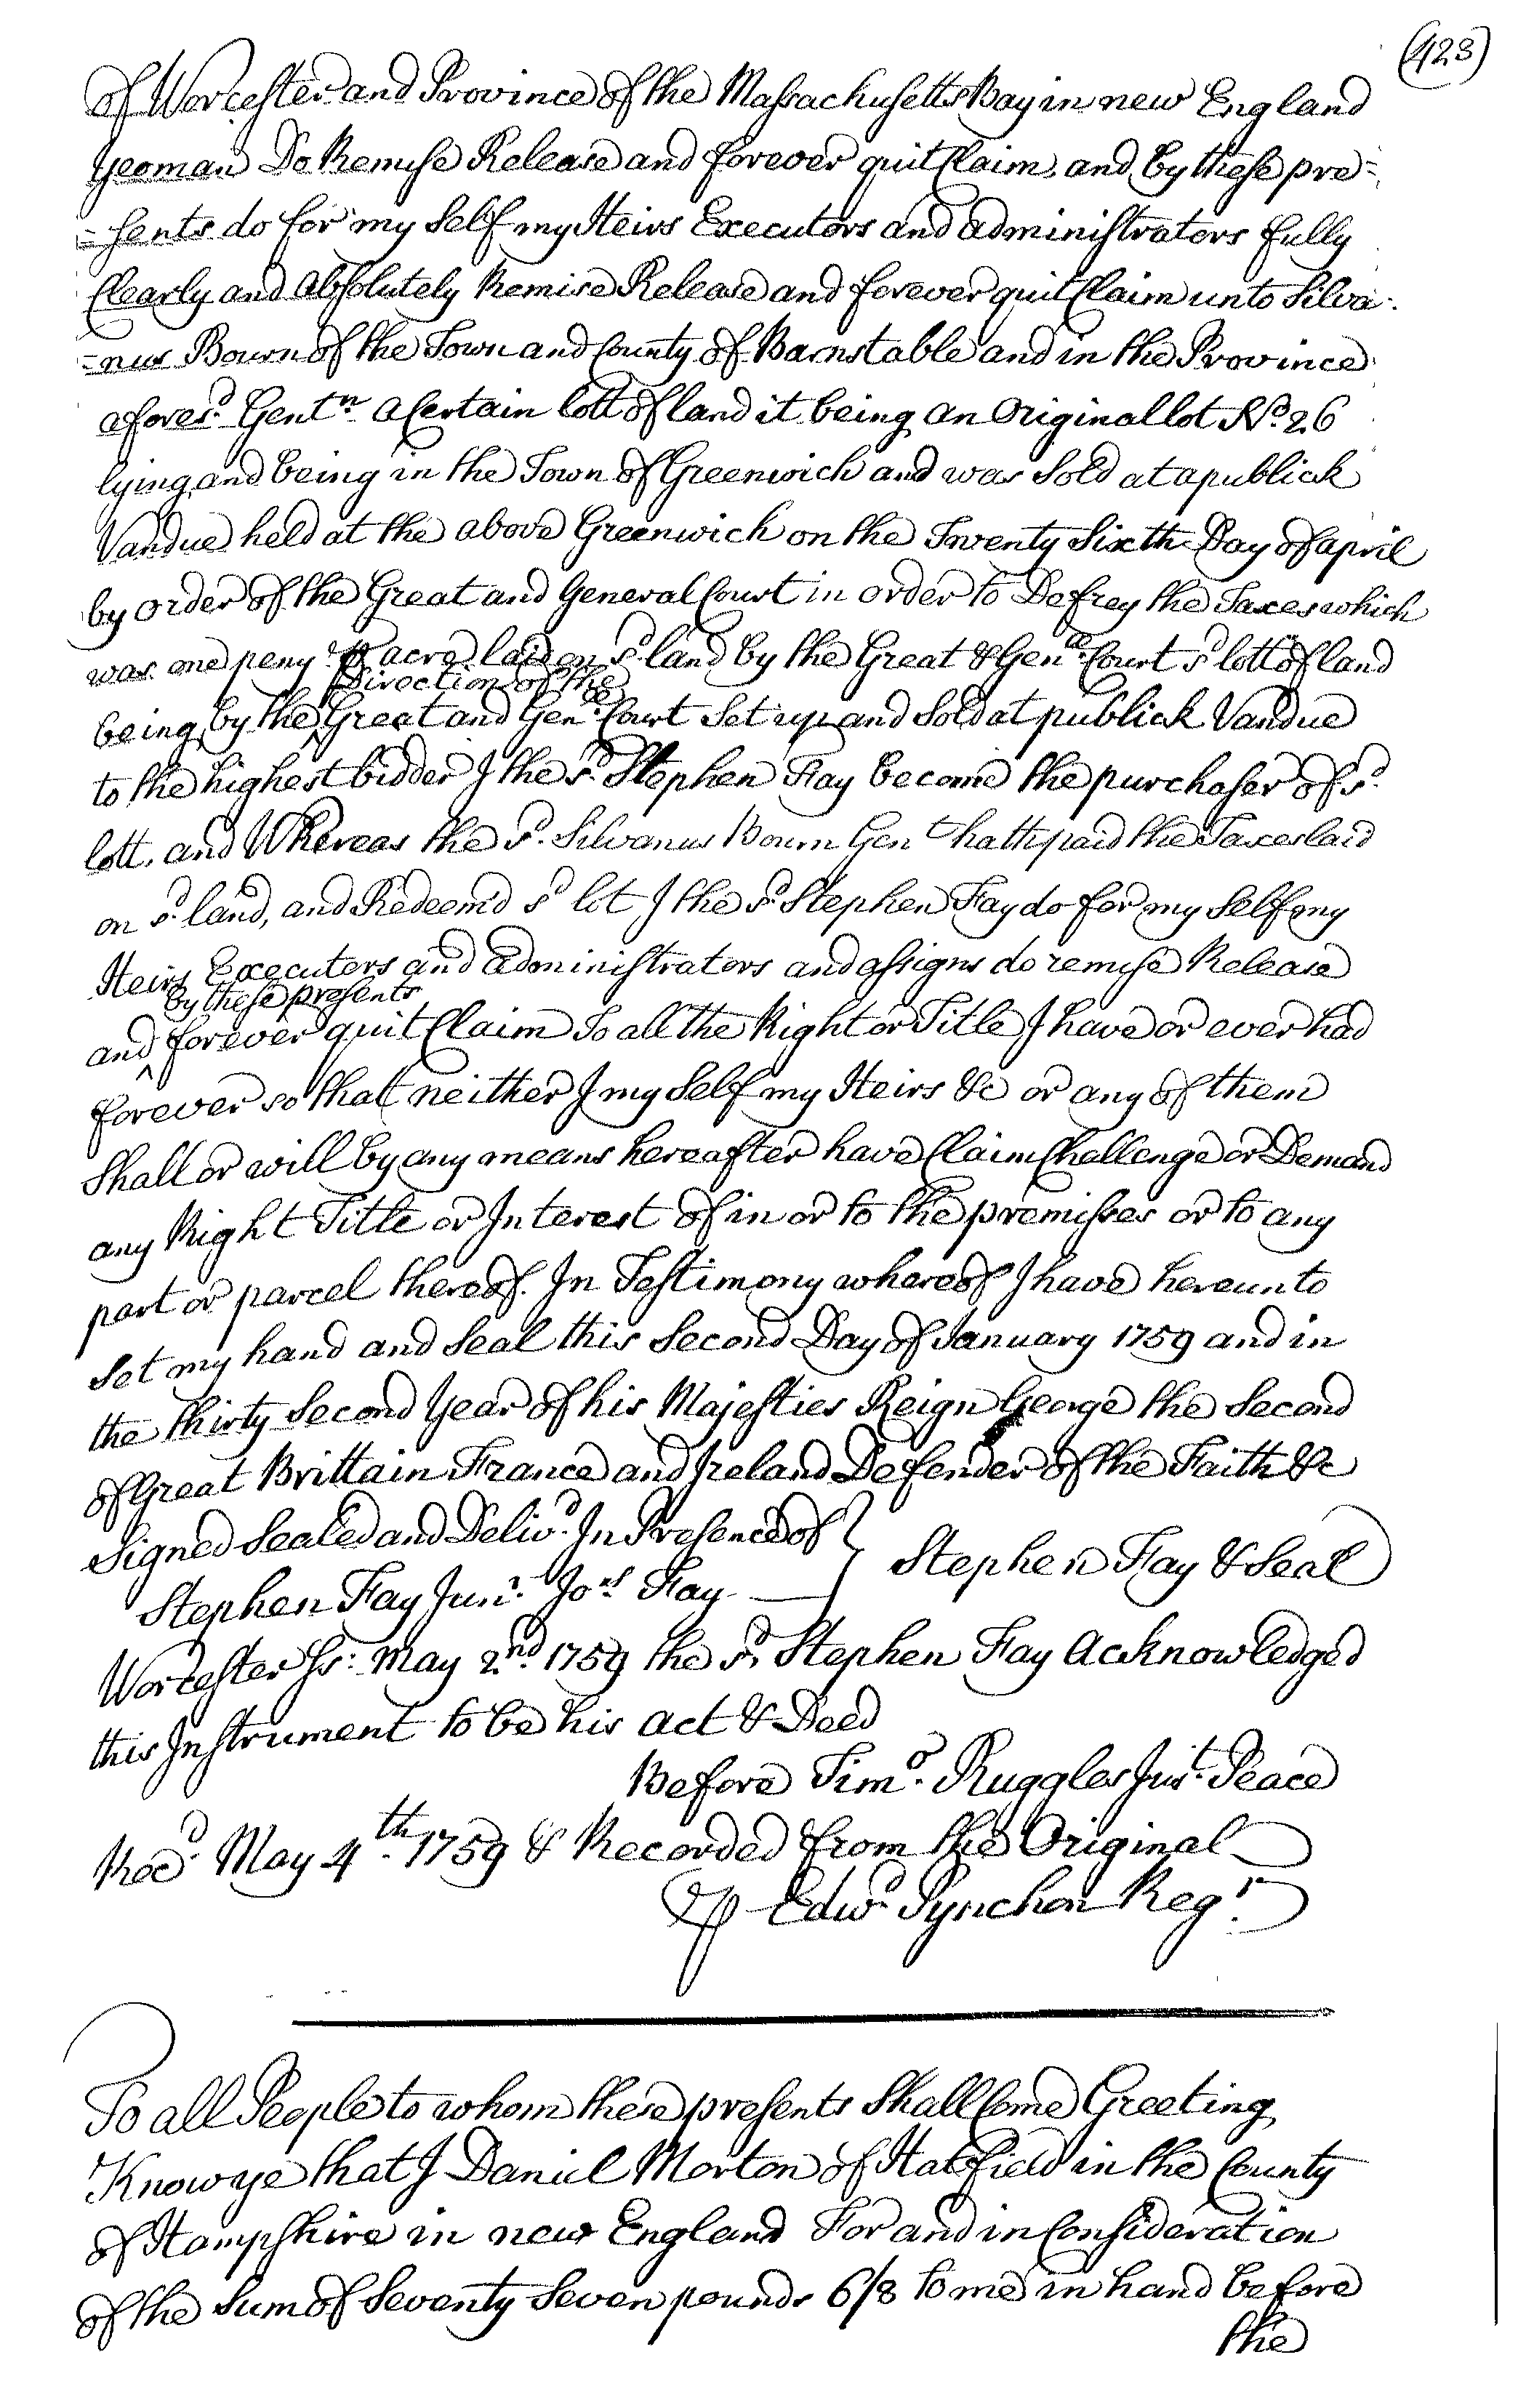 (423)
of Worcester and Province of the Massachusetts Bay in new England
Yeoman Do Remise Release and forever quit Claim, and by these pre=
=sents do for my Self my Heirs Executors and administrators fully
Clearly and absolutely Remise Release and forever quit Claim unto Silva=
=nus Bourn of the Town and County of Barnstable and in the Province
afores.d Gent.n a Certain lott of land it being an Original lot No. 26
lying and being in the Town of Greenwich and was Sold at a publick
Vandue held at the above Greenwich on the Twenty Sixth Day of april
by order of the Great and General Court in order to Defrey the Taxes which
was one peny p acre laid on s.d land by the Great & Gen.ll Court s.d lott of land
Direction of the
being by the ^ Great and Gen.ll Court Set up and Sold at publick Vandue
to the highest bidder I the s.d Stephen Fay become the purchaser of s.d
lott. and Whereas the s.d Silvanus Bourn Gen t hath paid the Taxes laid
on s.d land, and Redeem'd s.d lot I the s.d Stephen Fay do for my Self my
Heirs Executors and administrators and assigns do remise Release
by these presents
and ^ forever quit Claim To all the Right or Title I have or ever had
forever so that neither I my Self my Heirs &c or any of them
Shall or will by any means hereafter have Claim Challenge or Demand
any Right Title or Interest of in or to the premisses or to any
part or parcel thereof. In Testimony whereof I have hereunto
Set my hand and Seal this Second Day of January 1759 and in
the Thirty Second Year of his Majesties Reign George the Second
of Great Brittain France and Ireland Defender of the Faith &c
Signed Sealed and Deliv.d In Presence of } Stephen Fay & Seal
Stephen Fay Jun.r Jos Fay
Worcester Ss: May 2.nd 1759 the s.d Stephen Fay Acknowledged
this Instrument to be his act & Deed
Before Tim.o Ruggles Jus.t Peace
Rec.d May 4.th 1759 & Recorded from the Original
p Edw.d Pynchon Reg.r
To all People to whom these presents Shall Come Greeting
Know ye that I Daniel Morton of Hatfield in the County
of Hampshire in new England For and in Consideration
of the Sum of Seventy Seven pounds 6/8 to me in hand before
the